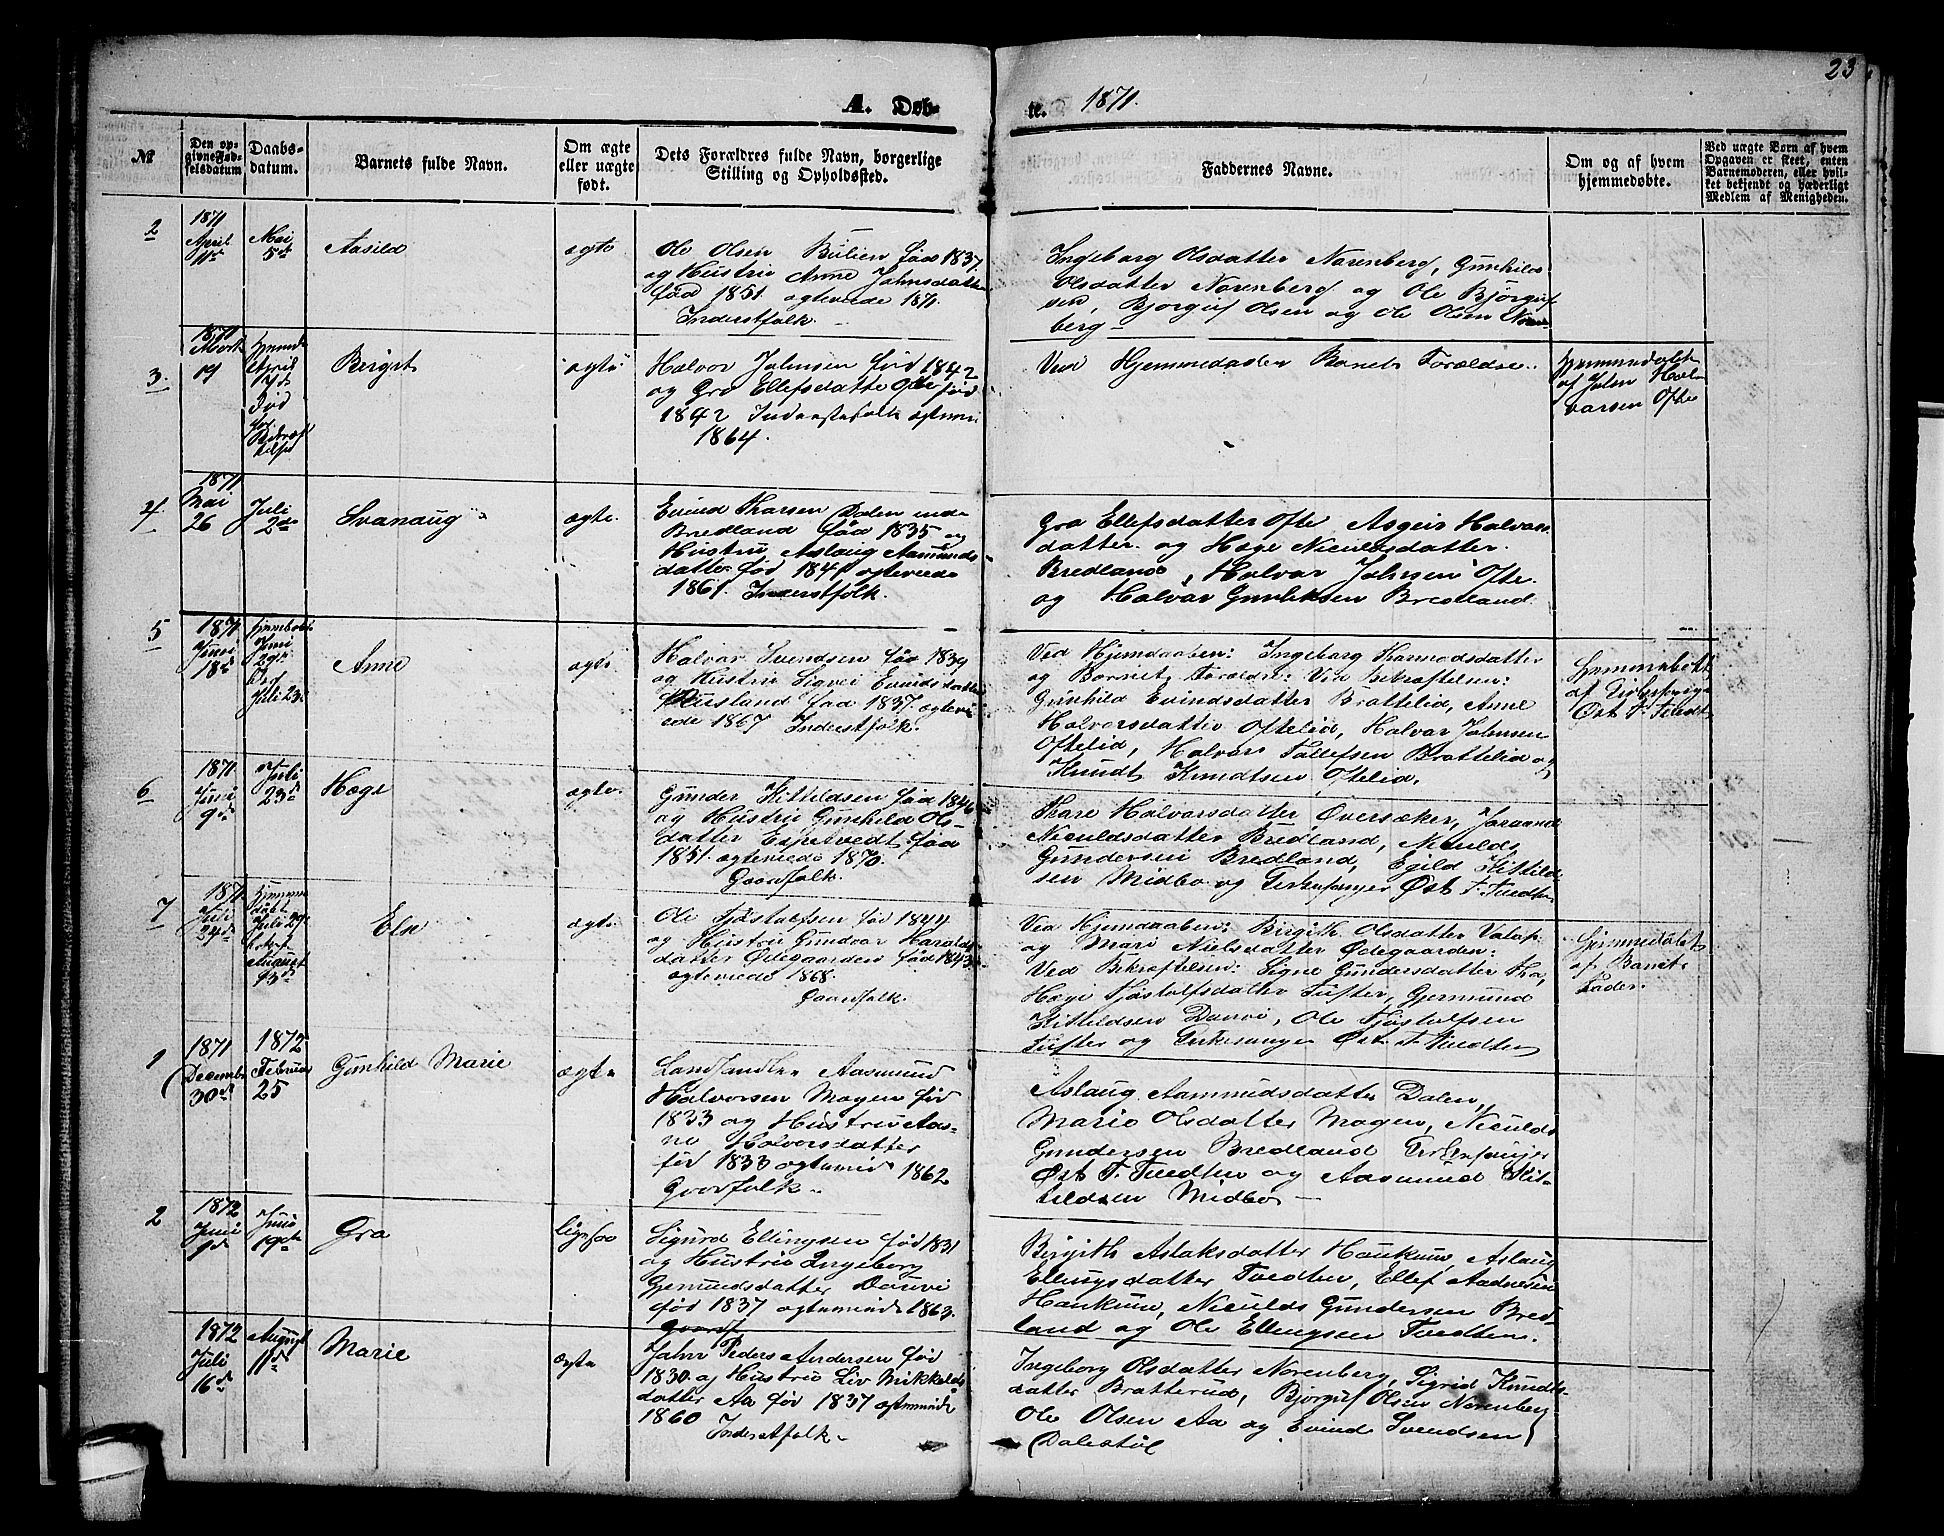 23
A. Døb-
te. 1871.
№
Den op-
givne Fød-
selsdatum
Daabs-
datum.
Barnets fulde Navn.
Om ægte
eller uægte
født.
Dets Forældres fulde Navn, borgerlige
Stilling og Opholdssted.
Faddernes Navne.
Om og af hvem
hjemmedøbte.
Ved uægte Børn af hvem
Opgaven er skeet, enten
Barnemoderen, eller hvil-
ket bekjendt og hæderligt
Medlem af Menigheden.
2
1871
April
11te
Mai
5te
Aasild
ægte
Ole Olsen Bölien fød 1837
og Hustru Anne Johnsdatter
fød 1851 ægteviede 1871.
Inderstfolk
Ingeborg Olsdatter Norenberg, Gunhild
Olsdatter Norenberg og Ole Bjørguf
sen, Bjørguf Olsen og Ole Olsen Noren
berg
3
1871
Marts
19
April
17de
Død
Birgit
ægte
Halvor Johnsen født 1842
og Gro Ellefsdatter Ofte født
1842 Inderstefolk ægteviet
1864.
Ved Hjemmedaaben Barnets Forældre
Hjemmedøbt
af John Hal-
vorsen Ofte
4
1871
Mai
26
Juli
2de
Svanaug
ægte.
Evind Tharsen Dalen
Bredland fød 1835 og
Hustru Aslaug Aamunds
datter fød 1841 ægteviede
1861. Inderstfolk.
Gro Ellefsdatter Ofte Asgeir Halvors
datter og Hæge Niculsdatter
Bredland, Halvor Johnsen Ofte
og Halvor Gunleiksen Bredland
5
1871
Juni
18de
Juni
29de
Juli 23de
Anne
ægte
Halvor Svendsen fød 1839
og Hustru Sigvei Evindsdatter
Husland fød 1837 ægtevi
ede 1867 Inderstfolk.
Ved Hjemdaaben: Ingeborg Thormodsdatter
og Barnets Forældre: Ved Bekræftelsen:
Gunhild Evindsdatter Brattelid, Anne
Halvorsdatter Oftelid, Halvor Johnsen
Oftelid, Halvor Tallefsen Brattelid og
Knudt Knudtsen Oftelid.
Hjemmedøbt
af Kirkesanger
Øst T. Tvedten
6
1871
Juni
9de
Juli
23de
Hæge
ægte.
Gunder Kittildsen fød 1846
og Hustru Gunhild Ols-
datter Espetvedt fød
1851. ægteviede 1870.
Gaardfolk.
Thore Halvorsdatter Oversaker, Joraand
Niculdsdatter Bredland, Niculds
Gundersen Bredland, Egild Kittild
sen Midbø og Kirkesanger Øst T. Tvedten
7
1871
Juli
24de
Hjemme
døbt
Juli 29de
August
Eln
ægte
Ole Tjøstolfsen fød 1844
og Hustru Gundvor Harolds
datter Ødegaarden fød 1843
ægteviede 1868.
Gaardfolk.
Ved Hjemdaaben: Birgith Olsdatter
og Mari Nielsdatter Ødegaarden:
Ved Bekræftelsen: Signe Gundersdatter
Hægi Tjøstolfsdatter Tufter, Gjermund
Kittildsen Dauvi, Ole Tjøstolfsen
Tufter og Kirkesanger Øst T. Tvedten
Hjemmedøbt
af Barnets
Fader.
1
1871
Decembr
30te
1872
Februar
25
Gunhild Marie
ægte
Landhandler Aasmund
Halvorsen Mogen fød
1833 og Hustru Aas-
ne Halvorsdatter
fød 1833 ægteviede 1862
Gaardfolk.
Aslaug Aamundsdatter Dalen,
Marie Olsdatter Mogen, Niculds
Gundersen Bredland Kirkesanger
Øst T. Tvedten og Aasmund Kit-
tildsen Midbø
2
1872
Juni
1ste
Juni
19de
Gro
ligesaa
Sigurd Ellingsen fød 1831
og Hustru Ingeborg
Gjermundsdatter Dauvi
fød 1837 ægteviede 1863.
Gaardf
Birgith Aslaksdatter Haukum, Aslaug
Ellingsdatter Tvedten, Ellef Aadnesen
Haukum, Niculds Gundersen Bred-
land og Ole Ellingsen Tvedten.
1872
Juli
16de
August
11te
Marie
ægte
John Peders Andersen fød
1830 og Hustru Liv Mikkels
datter Aa fød 1837 ægteviede
1860 Inderstfolk
Ingeborg Olsdatter Norenberg, Sigrid Knudts-
datter Bratterud, Bjørguf Olsen Norenberg
Ole Olsen Aa og Evind Svendsen
Dalestøl